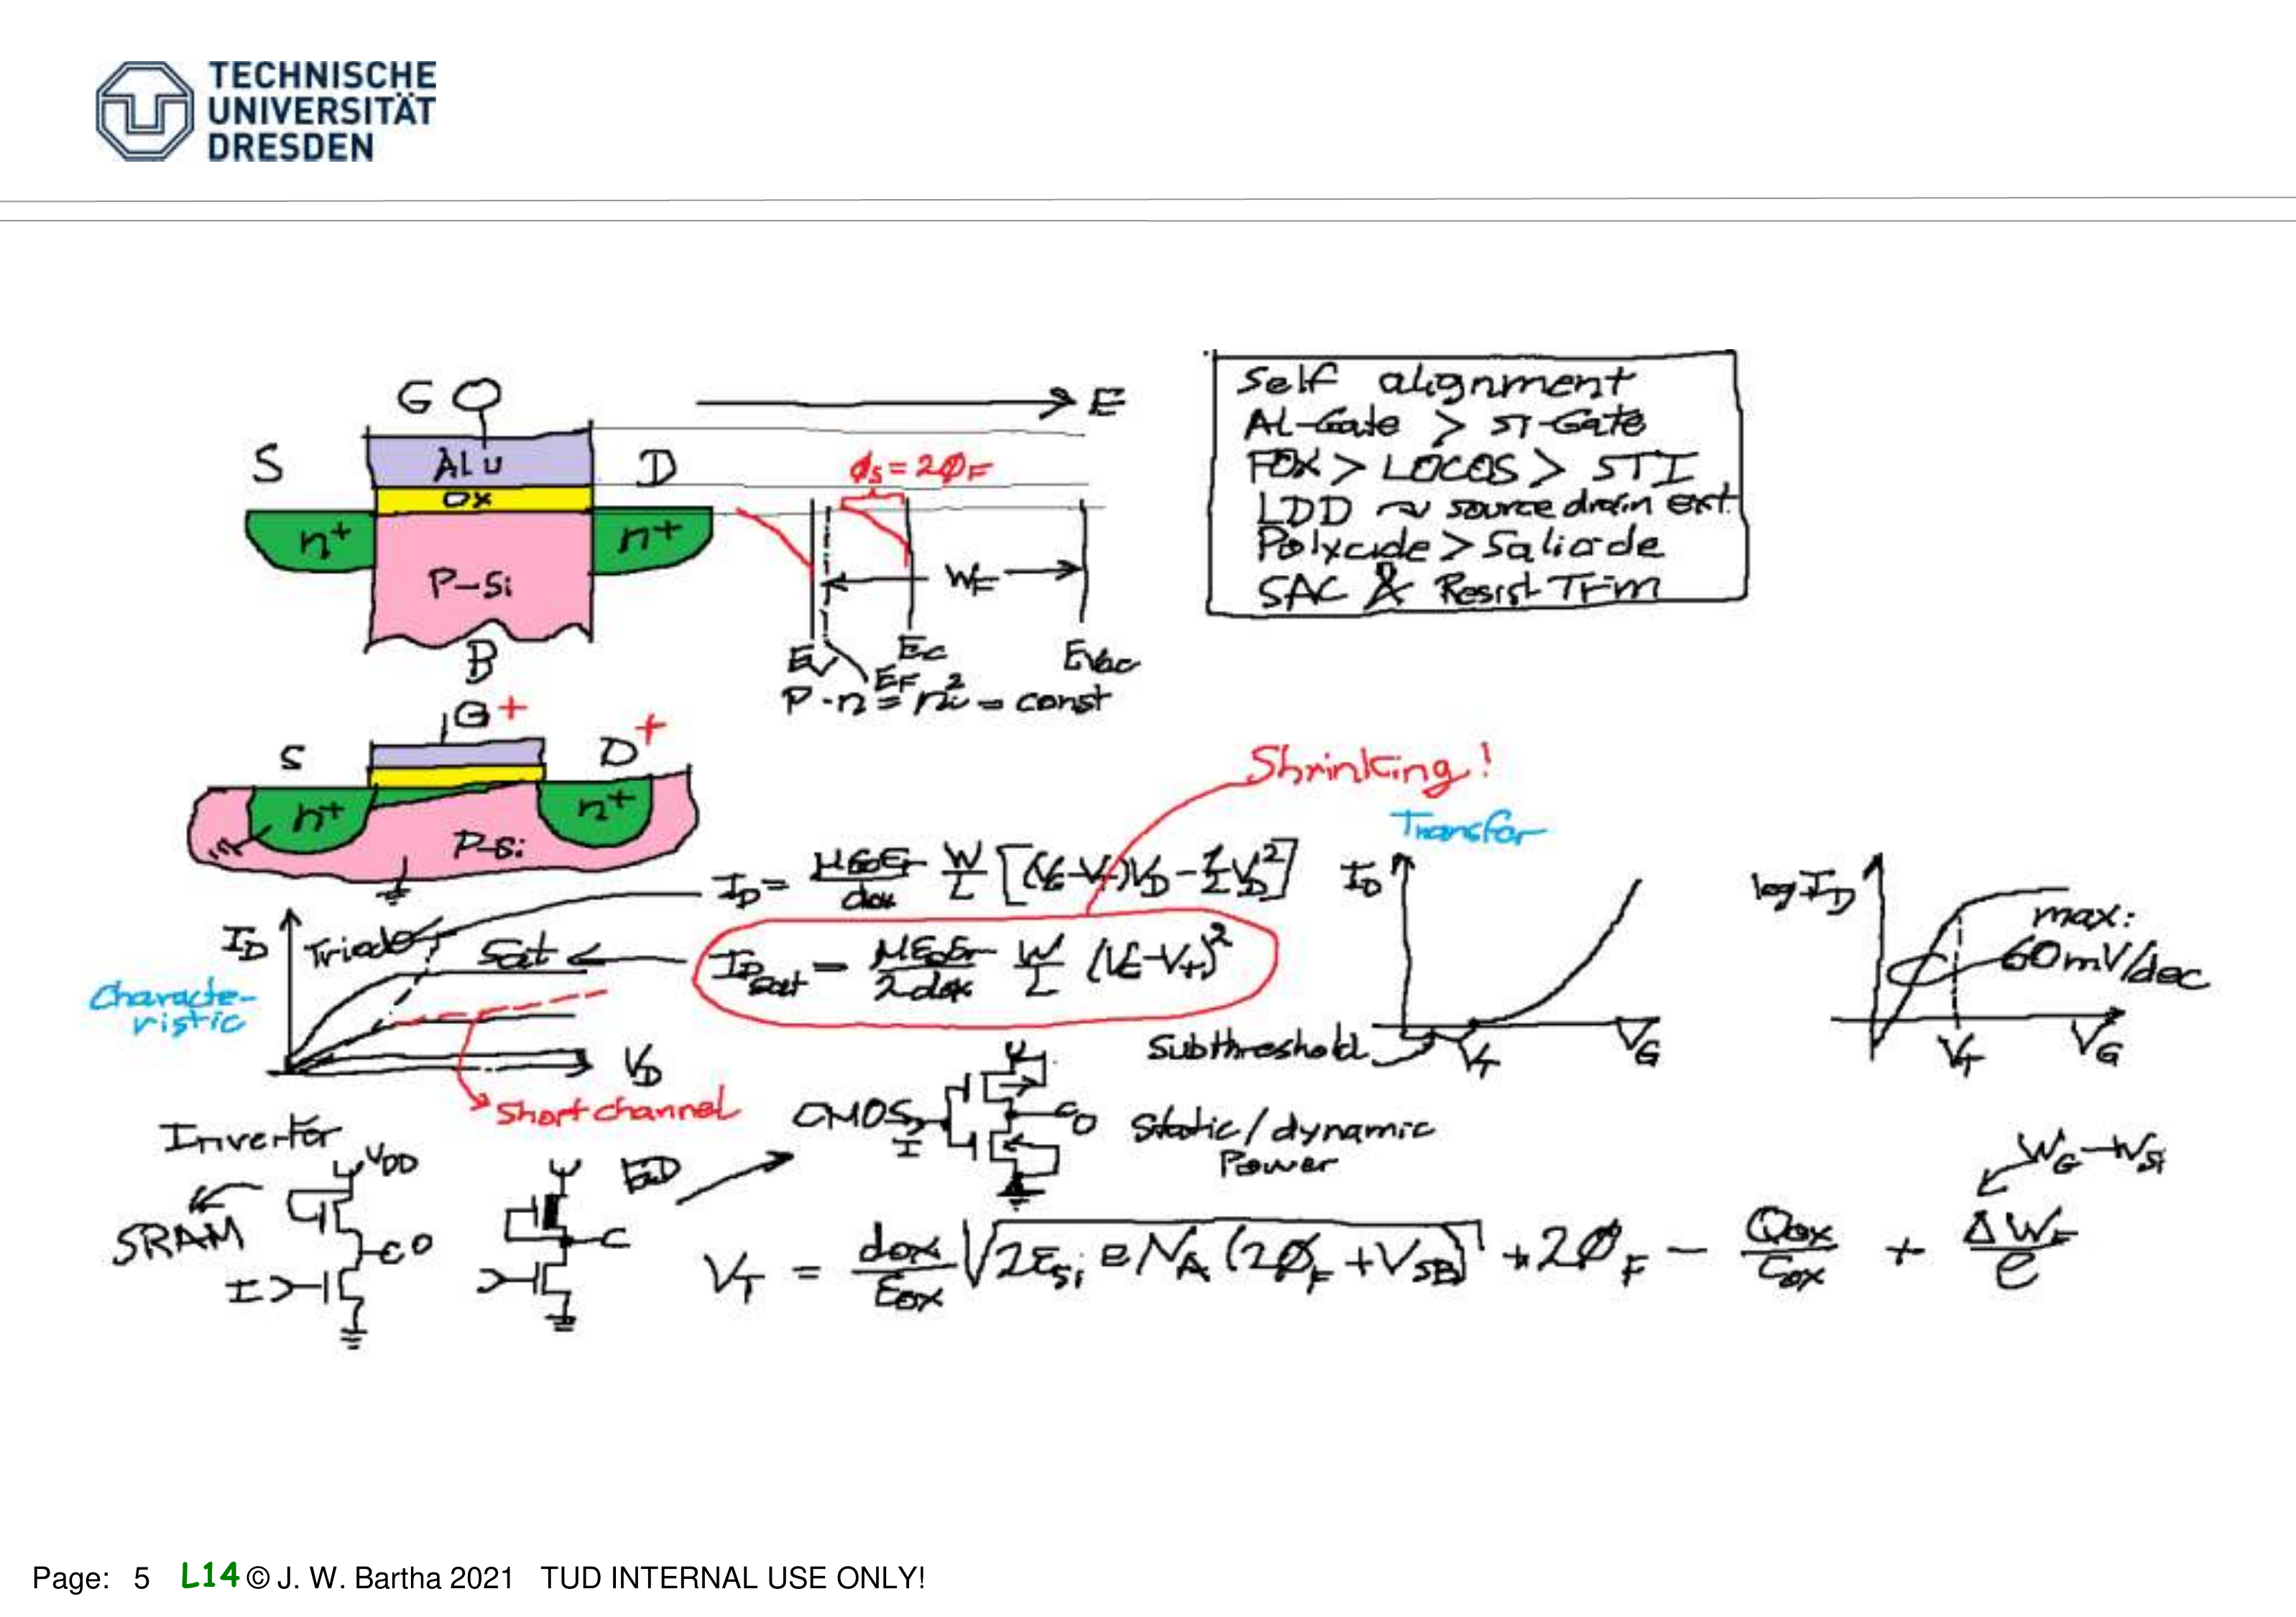 TECHNISCHE
UNIVERSITÄT
DRESDEN
G
E
S
Alu
D
ox
n+
n+
P-Si
B
ϕs = 2ϕF
WF
Ev
EF
Ec
Evac
P·n = ni² = const
Self alignment
AL-Gate > Si-Gate
FOX > LOCOS > STI
LDD ~ source drain ext.
Polycide > Salicide
SAC & Resist Trim
G+
S
D+
n+
n+
P-Si
Shrinking!
ID = με0εr/dox W/L [(VG-VT)VD - 1/2 VD²]
IDsat = με0εr/2dox W/L (VG-VT)²
Characte-
ristic
ID
Triode
Sat
VD
Short channel
Transfer
ID
Subthreshold
VT
VG
log ID
max:
60mV/dec
VT
VG
Inverter
VDD
SRAM
O
I
ED
CMOS
I
O
Static / dynamic
Power
WG-WSi
VT = dox/εox √2εSi e NA (2ϕF + VSB) + 2ϕF - Qox/Cox + ΔWF/e
Page: 5 L14 © J. W. Bartha 2021 TUD INTERNAL USE ONLY!